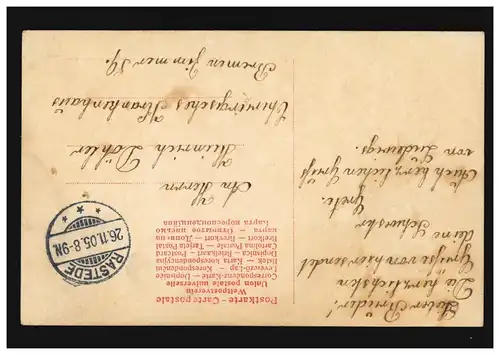 Postkarte - Carte postale
Weltpostverein
Union postale universelle
Correspondenz-Karte - Dopisnice
Levelező-Lap - Correspondenzkarte
listek - Karta korespondencyjna
Dopisnica - Briefkaart - Postcard
Cartolina Postale - Tarjeta Postal
Brefkort - Brevkort -
карта - Открытое письмо
Карта кореспонденциiна
RASTEDE
26.11.05.8-9N.
An Herrn
Heinrich Döhler
Chirurgisches Krankenhaus
Bremen Zimmer 54.
Lieber Bruder!
Die herzlichsten
Grüsse von hier sendet
deine Schwester
Grete.
Auch herzlichen Gruß
von Ludwigs.